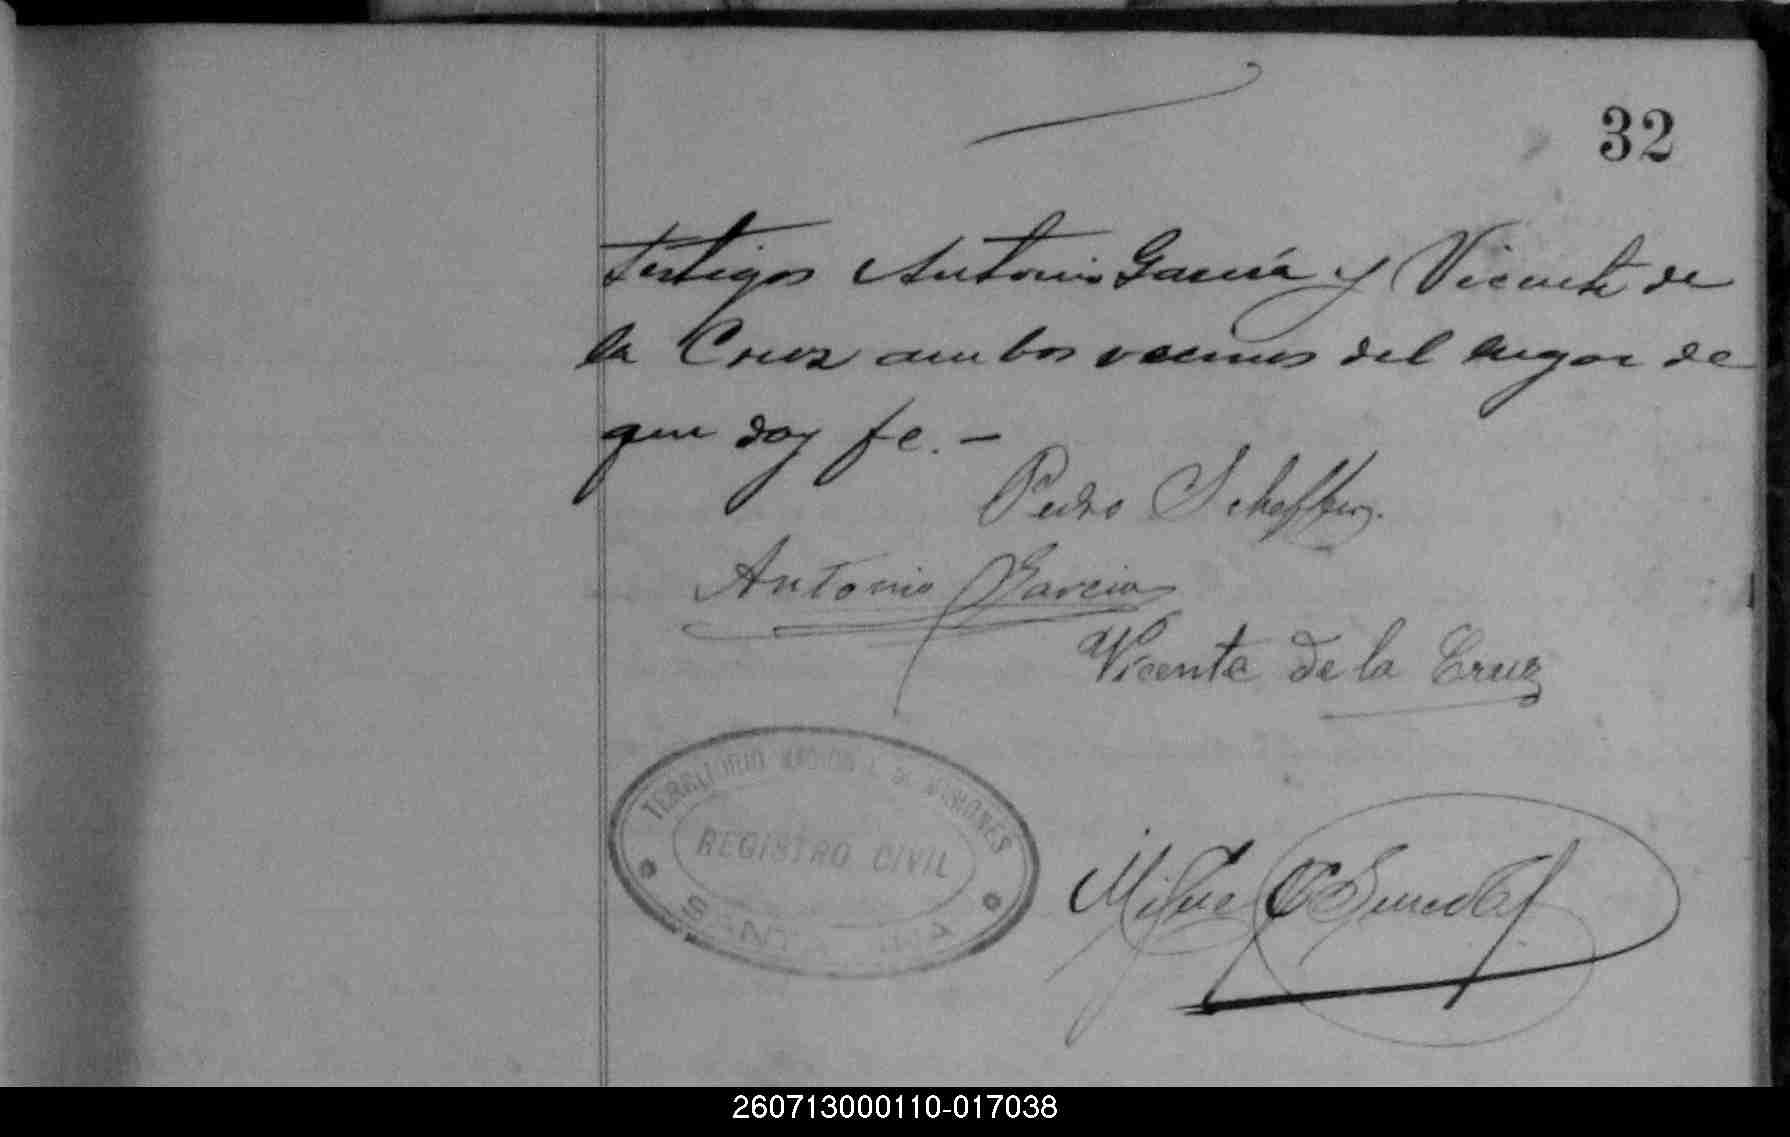 32
testigos Antonio García y Vicente de
la Cruz ambos vecinos del lugar de
que doy fe. —
Pedro Scheffer.
Antonio Garcia
Vicente de la Cruz
TERRITORIO NACIONAL DE MISIONES
REGISTRO CIVIL
SANTA ANA
Miguel
260713000110-017038